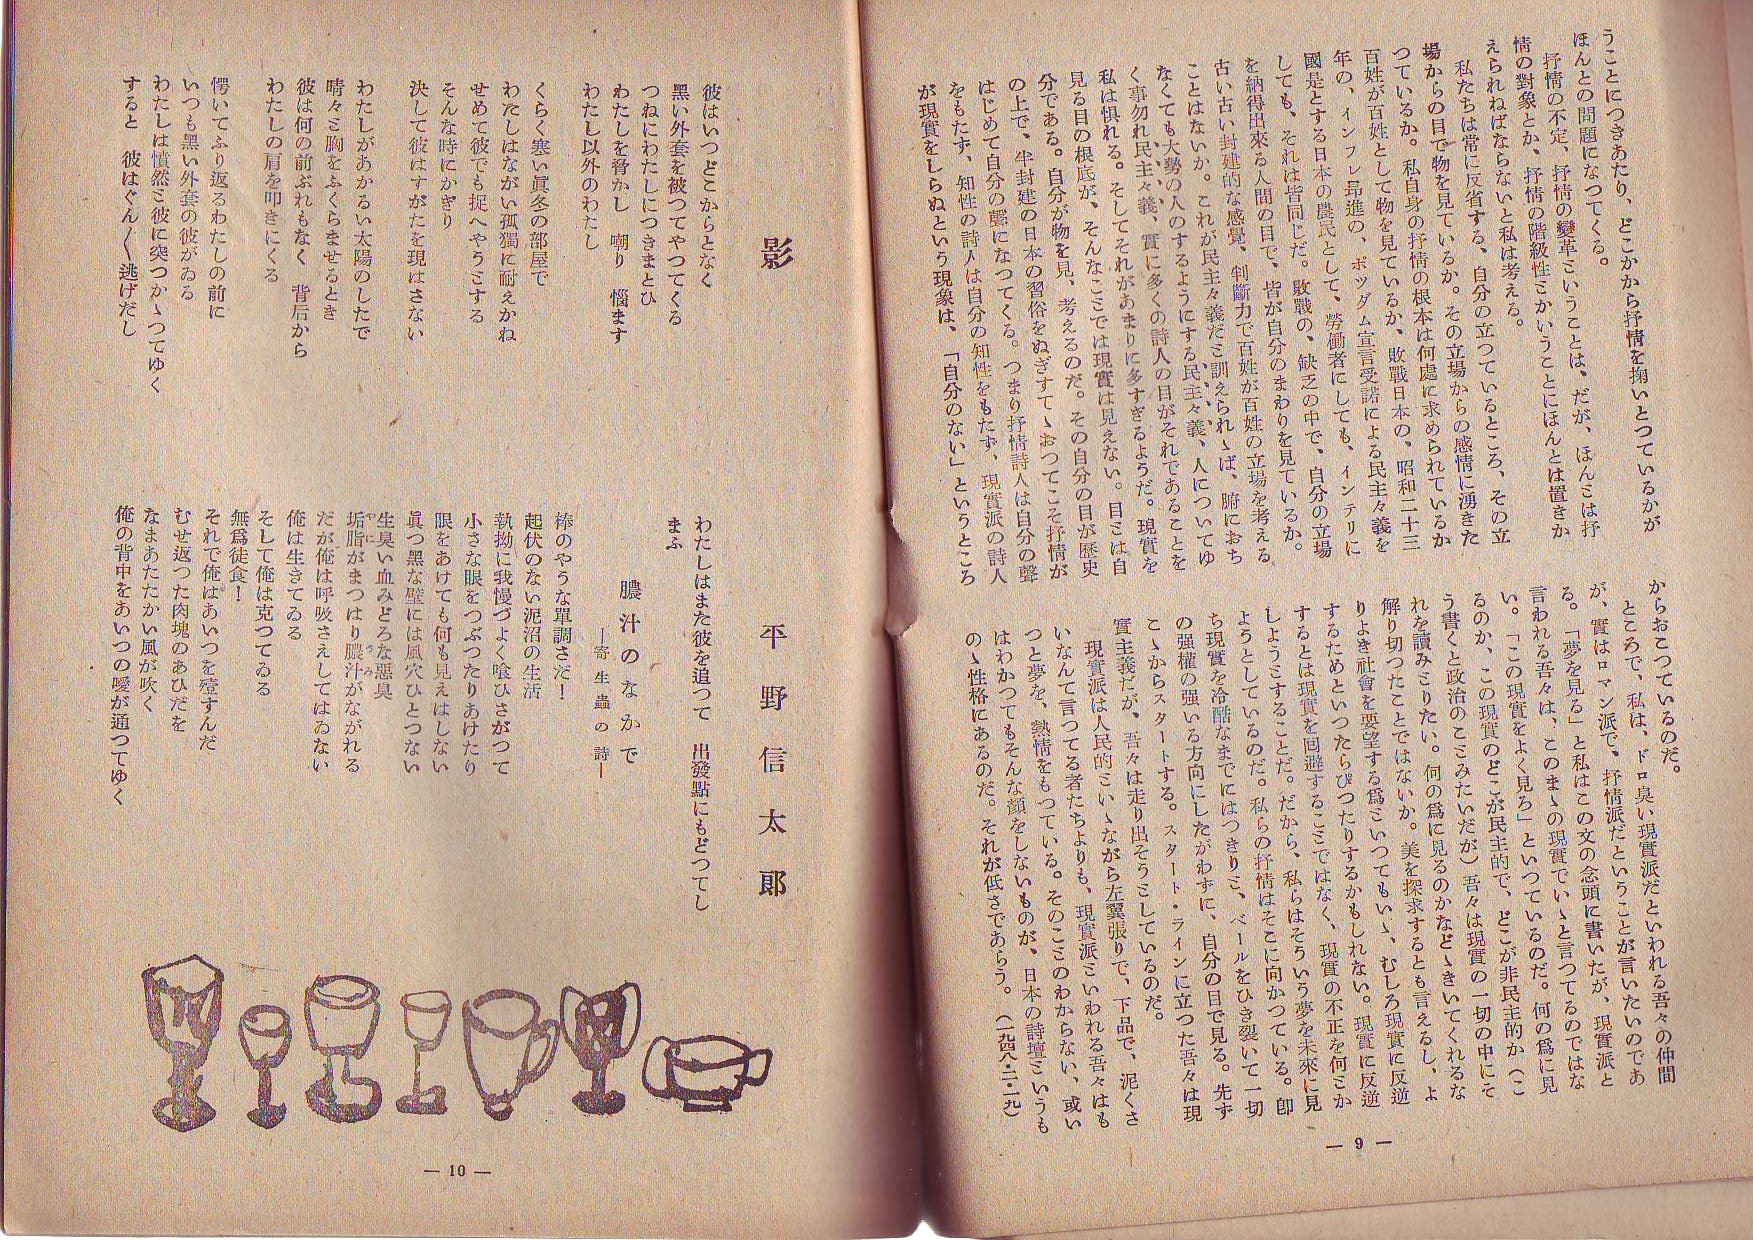 うことにつきあたり、どこかから抒情を掬いとつているかが
ほんとの問題になつてくる。
抒情の不定、抒情の變革ミいうことは、だが、ほんミは抒
情の對象とか、抒情の階級性ミかいうことにほんとは置きか
えられねばならないと私は考える。
私たちは常に反省する、自分の立つているところ、その立
場からの目で物を見ているか。その立場からの感情に湧きた
つているか。私自身の抒情の根本は何處に求められているか
百姓が百姓として物を見ているか、敗戰日本の、昭和二十三
年の、インフレ昻進の、ポツダム宣言受諾による民主々義を
國是とする日本の農民として、勞働者にしても、インテリに
しても、それは皆同じだ。敗戰の、缺乏の中で、自分の立場
を納得出來る人間の目で、皆が自分のまわりを見ているか。
古い古い封建的な感覺、判斷力で百姓が百姓の立場を考える
ことはないか。これが民主々義だミ訓えられゝば、腑におち
なくても大勢の人のするようにする民主々義、人についてゆ
く事勿れ民主々義、實に多くの詩人の目がそれであることを
私は惧れる。そしてそれがあまりに多すぎるようだ。現實を
見る目の根底が、そんなこミでは現實は見えない。目ミは自
分である。自分が物を見、考えるのだ。その自分の目が歷史
の上で、半封建の日本の習俗をぬぎすてゝおつてこそ抒情が
はじめて自分の聲になつてくる。つまり抒情詩人は自分の聲
をもたず、知性の詩人は自分の知性をもたず、現實派の詩人
が現實をしらぬという現象は、「自分のない」というところ
からおこつているのだ。
ところで、私は、ドロ臭い現實派だといわれる吾々の仲間
が、實はロマン派で、抒情派だということが言いたいのであ
る。「夢を見る」と私はこの文の念頭に書いたが、現實派と
言われる吾々は、このまゝの現實でいゝと言つてるのではな
い。「この現實をよく見ろ」といつているのだ。何の爲に見
るのか、この現實のどこが民主的で、どこが非民主的か（こ
う書くと政治のこミみたいだが）吾々は現實の一切の中にそ
れを讀みミりたい。何の爲に見るのかなどゝきいてくれるな
解り切つたことではないか。美を探求するとも言えるし、よ
りよき社會を要望する爲ミいつてもいゝ、むしろ現實に反逆
するためといつたらぴつたりするかもしれない。現實に反逆
するとは現實を回避するこミではなく、現實の不正を何ミか
しようミすることだ。だから、私らはそういう夢を未來に見
ようとしているのだ。私らの抒情はそこに向かつている。卽
ち現實を冷酷なまでにはつきりミ、ベールをひき裂いて一切
の强權の强いる方向にしたがわずに、自分の目で見る。先ず
こゝからスタートする。スタート・ラインに立つた吾々は現
實主義だが、吾々は走り出そうミしているのだ。
現實派は人民的ミいゝながら左翼張りで、下品で、泥くさ
いなんて言つてる者たちよりも、現實派ミいわれる吾々はも
つと夢を、熱情をもつている。そのこミのわからない、或い
はわかつてもそんな顏をしないものが、日本の詩壇ミいうも
のゝ性格にあるのだ。それが低さであらう。（一九四八・二・一九）
— 9 —
影
平野信太郎
彼はいつどこからとなく
黑い外套を被つてやつてくる
つねにわたしにつきまとひ
わたしを脅かし　嘲り　惱ます
わたし以外のわたし
くらく寒い眞冬の部屋で
わたしはながい孤獨に耐えかね
せめて彼でも捉へやうミする
そんな時にかぎり
決して彼はすがたを現はさない
わたしがあかるい太陽のしたで
晴々ミ胸をふくらませるとき
彼は何の前ぶれもなく　背后から
わたしの肩を叩きにくる
愕いてふり返るわたしの前に
いつも黑い外套の彼がゐる
わたしは憤然ミ彼に突つかゝつてゆく
すると　彼はぐん〳〵逃げだし
わたしはまた彼を追つて　出發點にもどつてし
まふ
膿汁のなかで
—寄生蟲の詩—
棒のやうな單調さだ！
起伏のない泥沼の生活
執拗に我慢づよく喰ひさがつて
小さな眼をつぶつたりあけたり
眼をあけても何も見えはしない
眞つ黑な壁には風穴ひとつない
生臭い血みどろな惡臭
垢脂がまつはり膿汁がながれる
やに　うみ
だが俺は呼吸さえしてはゐない
俺は生きてゐる
そして俺は克つてゐる
無爲徒食！
それで俺はあいつを殪すんだ
むせ返つた肉塊のあひだを
なまあたたかい風が吹く
俺の背中をあいつの噯が通つてゆく
— 10 —